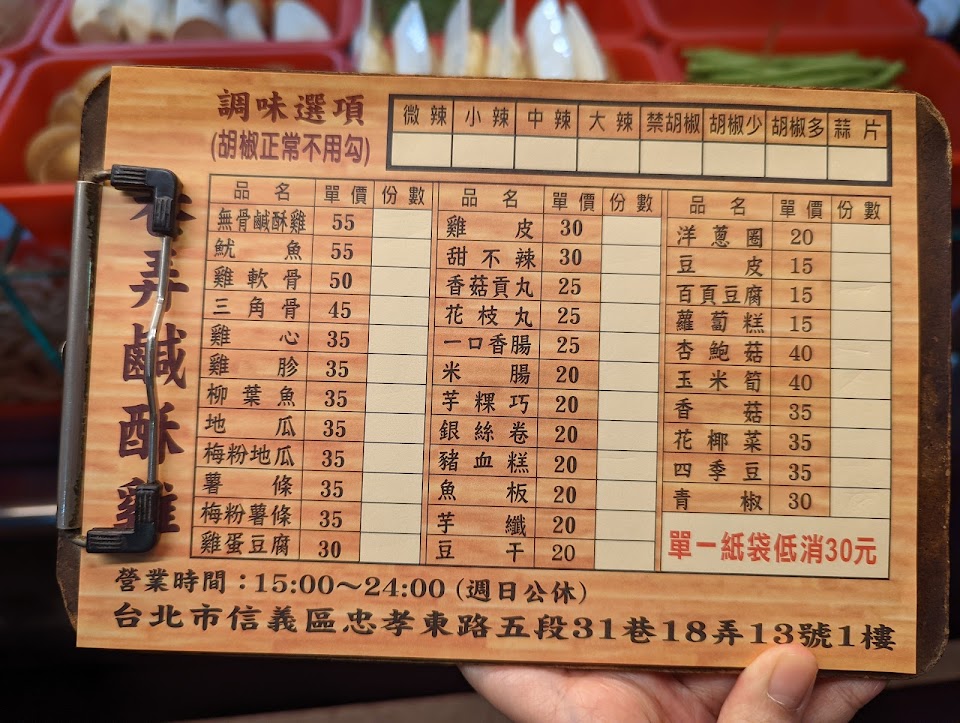 調味選項
(胡椒正常不用勾)
微辣 小辣 中辣 大辣 禁胡椒 胡椒少 胡椒多 蒜片
弄鹹酥雞
品名 單價 份數
無骨鹹酥雞 55
魷魚 55
雞軟骨 50
三角骨 45
雞心 35
雞胗 35
柳葉魚 35
地瓜 35
梅粉地瓜 35
薯條 35
梅粉薯條 35
雞蛋豆腐 30
品名 單價 份數
雞皮 30
甜不辣 30
香菇貢丸 25
花枝丸 25
一口香腸 25
米腸 20
芋粿巧 20
銀絲卷 20
豬血糕 20
魚板 20
芋纖 20
豆干 20
品名 單價 份數
洋蔥圈 20
豆皮 15
百頁豆腐 15
蘿蔔糕 15
杏鮑菇 40
玉米筍 40
香菇 35
花椰菜 35
四季豆 35
青椒 30
單一紙袋低消30元
營業時間：15:00～24:00 (週日公休)
台北市信義區忠孝東路五段31巷18弄13號1樓